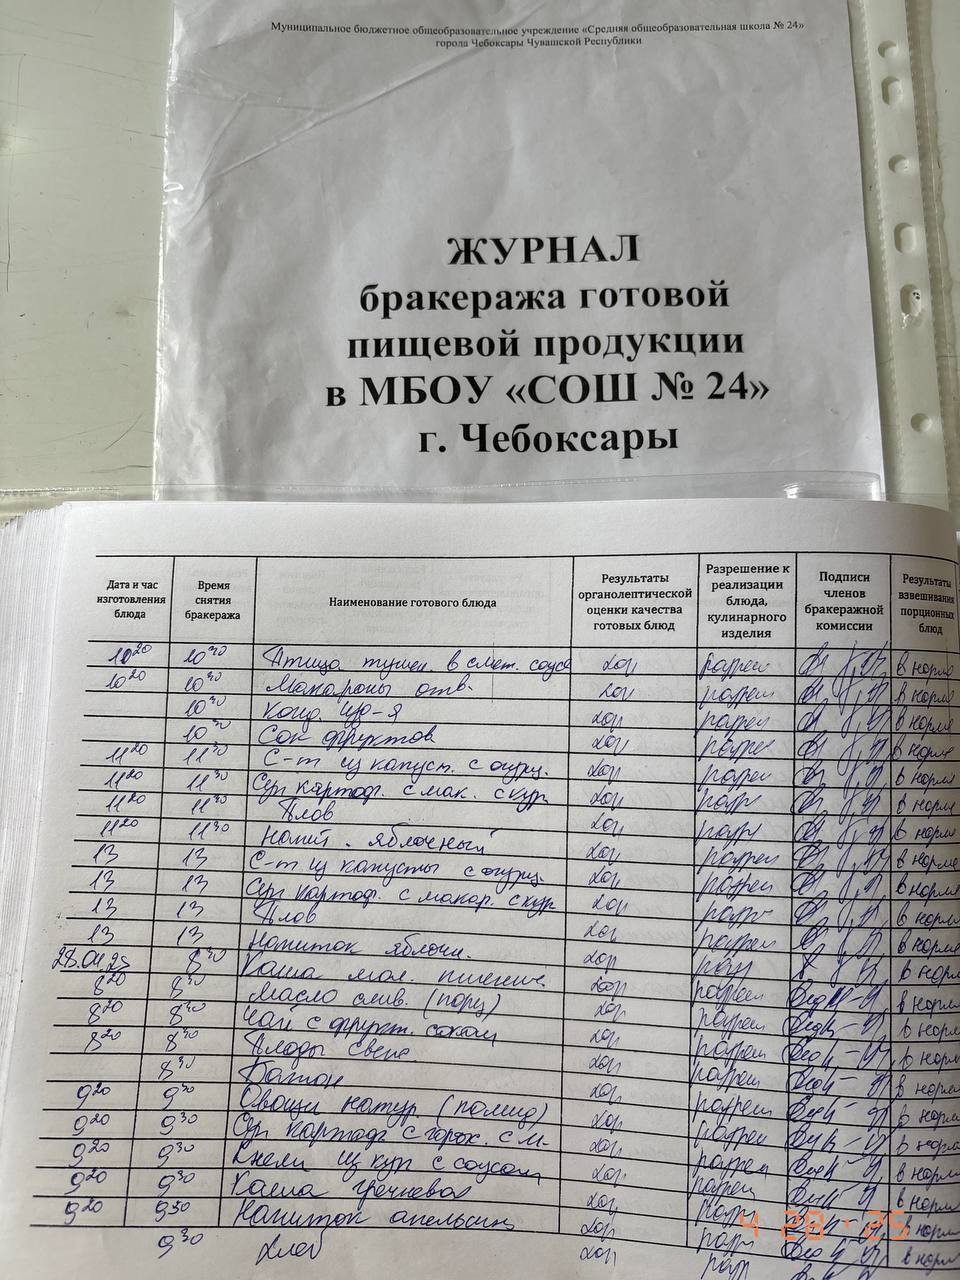 Муниципальное бюджетное общеобразовательное учреждение «Средняя общеобразовательная школа № 24»
города Чебоксары Чувашской Республики
ЖУРНАЛ
бракеража готовой
пищевой продукции
в МБОУ «СОШ № 24»
г. Чебоксары
Дата и час изготовления блюда Время снятия бракеража Наименование готового блюда Результаты органолептической оценки качества готовых блюд Разрешение к реализации блюда, кулинарного изделия Подписи членов бракеражной комиссии Результаты взвешивания порционных блюд
10 20 10 30 Птица тушен. в смет. соусе хор разреш в норме
10 20 10 30 Макароны отв. хор разреш в норме
10 30 Конд. изд-я хор разреш в норме
10 30 Сок фруктов хор разреш в норме
11 20 11 30 С-т из капуст. с огурц. хор разреш в норме
11 20 11 30 Суп картоф. с мак. с кур хор разр в норме
11 20 11 30 Плов хор разр в норме
11 20 11 30 Напит. яблочный хор разреш в норме
13 13 С-т из капусты с огурц. хор разреш в норме
13 13 Суп картоф. с макар. с кур хор разр в норме
13 13 Плов хор разреш в норме
13 13 Напиток яблочн. хор разр в норме
28.04.25 8 30 Каша мол. пшенич. хор разреш в норме
8 20 8 30 Масло слив. (порц) хор разреш в норме
8 20 8 30 Чай с фрукт. соком хор разреш в норме
8 20 8 30 Плоды свеж хор разреш в норме
8 30 Батон хор разреш в норме
9 20 9 30 Овощи натур. (помид) хор разреш в норме
9 20 9 30 Суп картоф с горох. с м. хор разреш в норме
9 20 9 30 Кнели из кур с соусом хор разреш в норме
9 20 9 30 Каша гречневая хор разр в норме
9 20 9 30 Напиток апельсин хор разр в норме
9 30 Хлеб хор разр в норме
4 28 '25